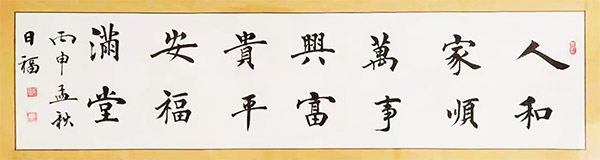 人和
家順
萬事
興富
貴平
安福
滿堂
丙申孟秋
日福